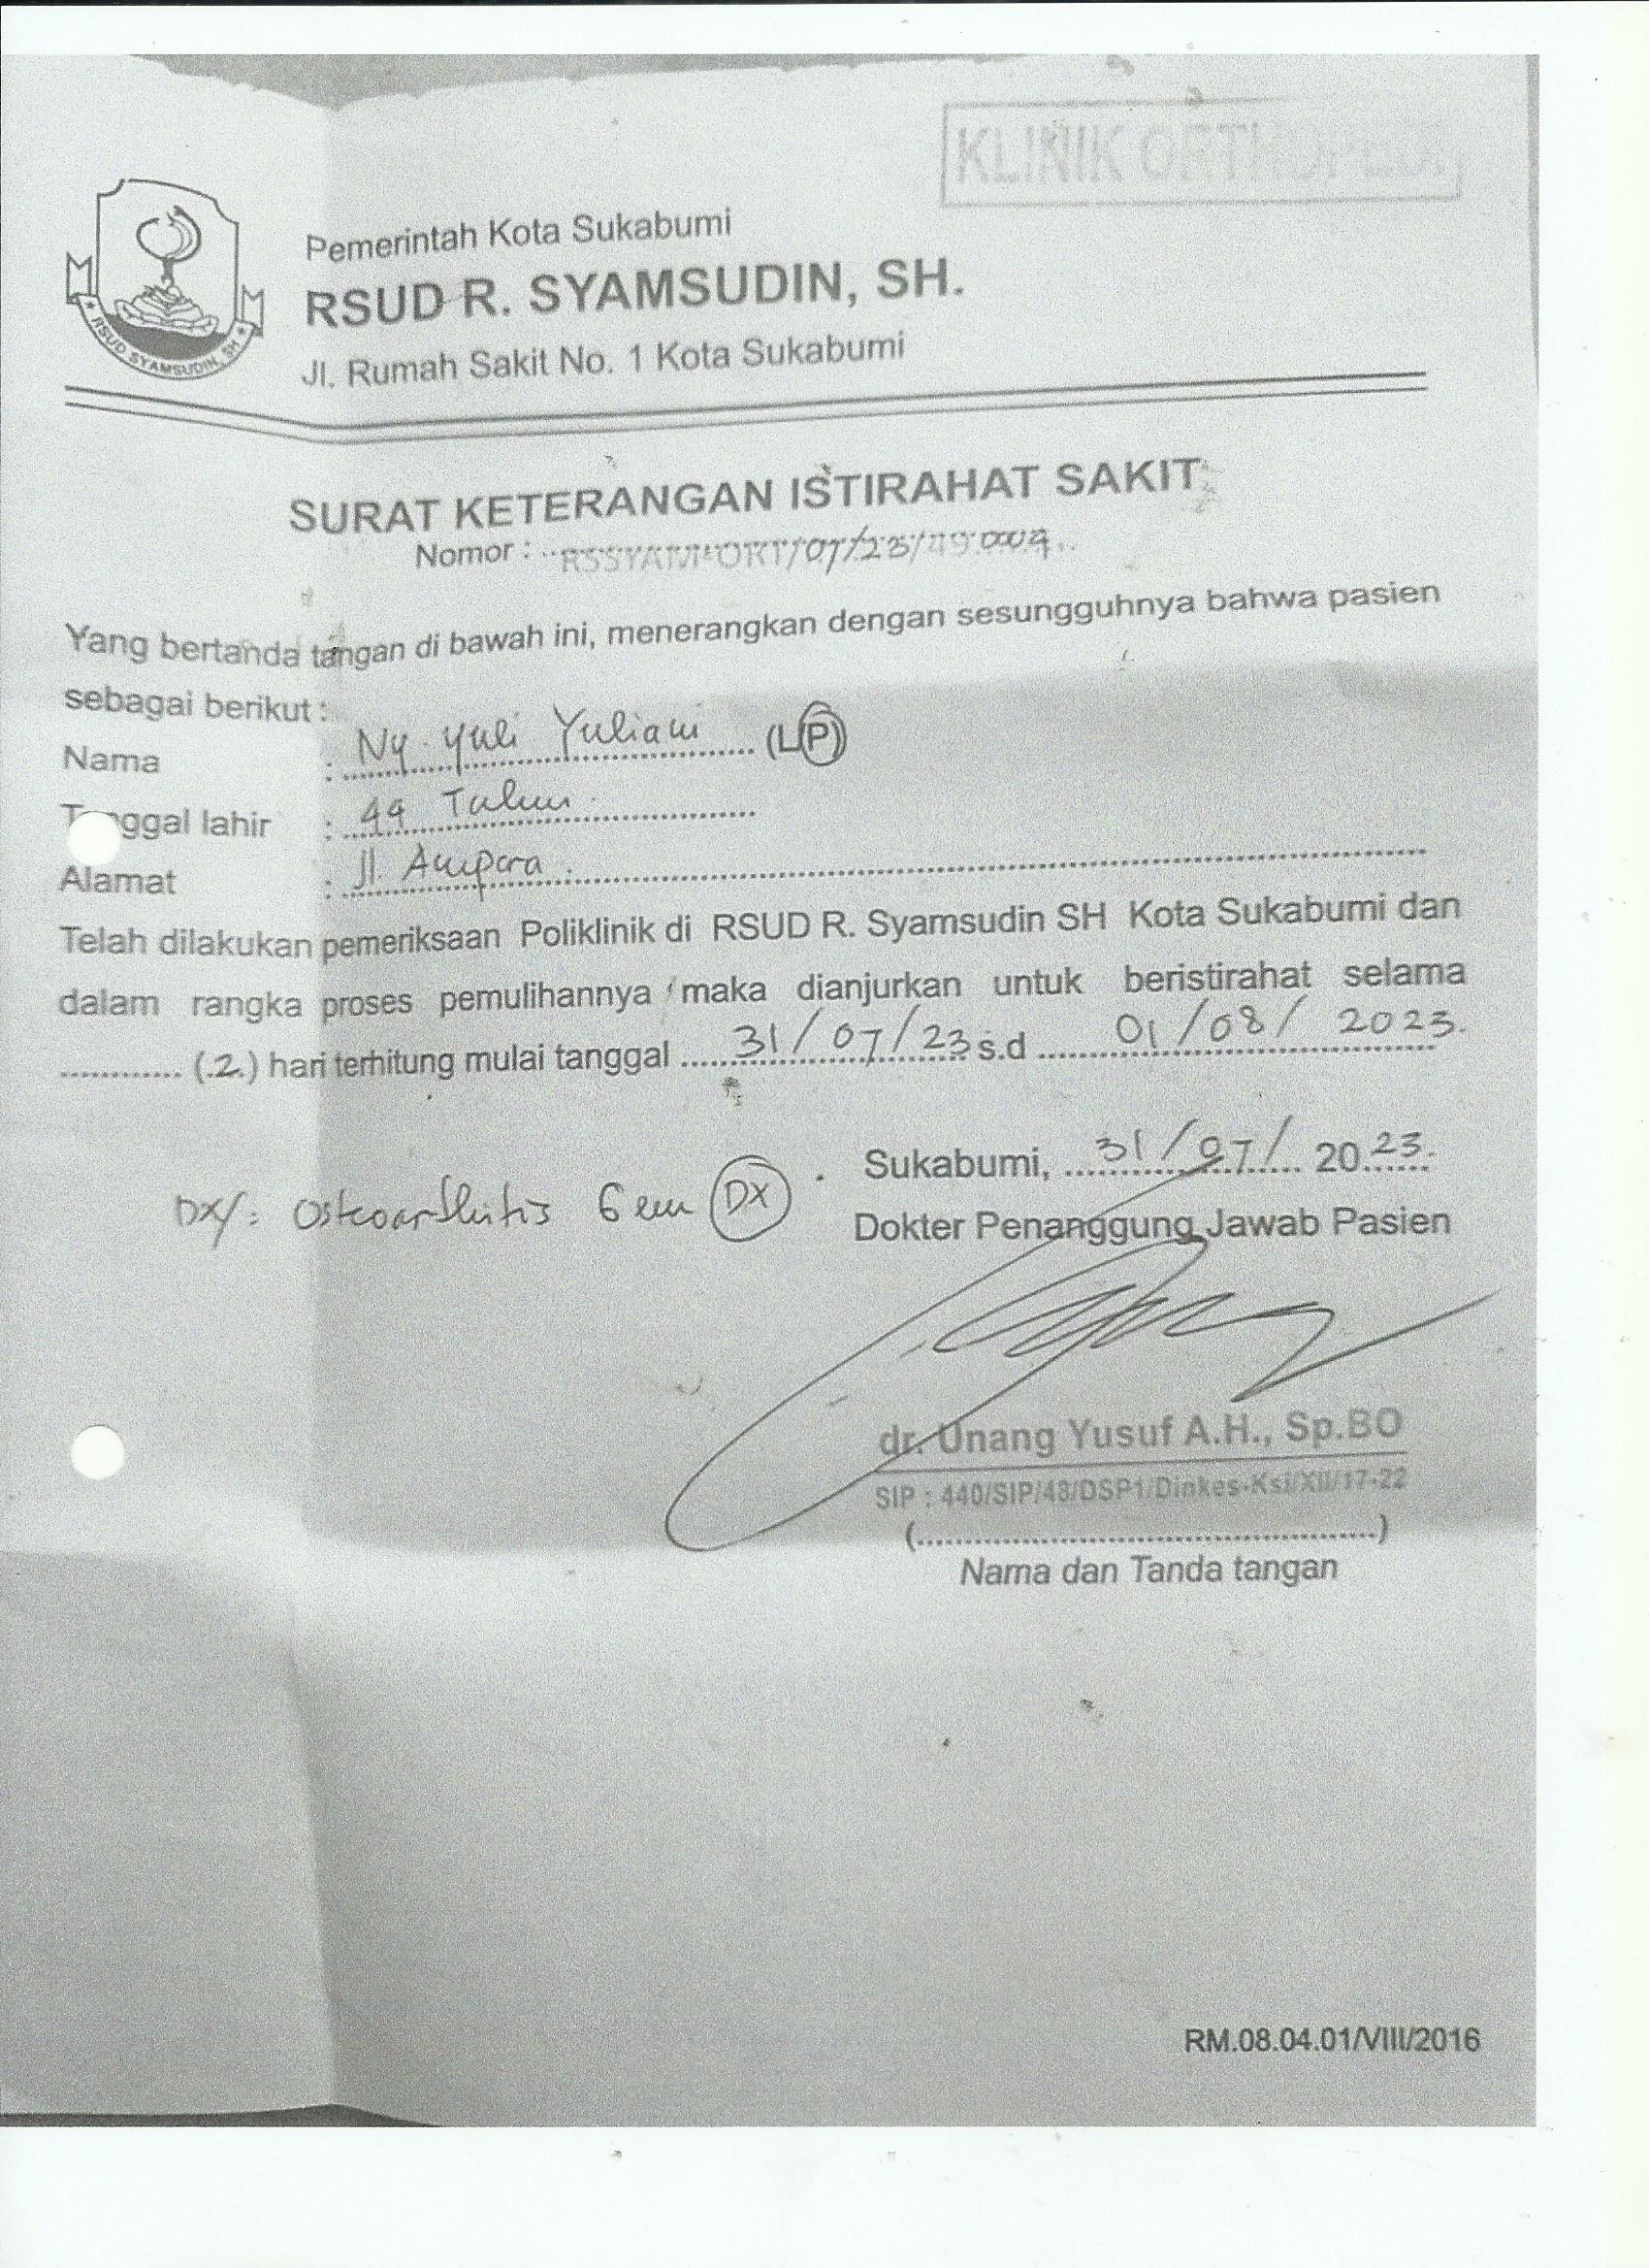 KLINIK ORTHOPEDI
Pemerintah Kota Sukabumi
RSUD R. SYAMSUDIN, SH.
Jl. Rumah Sakit No. 1 Kota Sukabumi
RSUD SYAMSUDIN, SH
SURAT KETERANGAN ISTIRAHAT SAKIT
Nomor : RSSYAM-ORT/07/23/49.0009
Yang bertanda tangan di bawah ini, menerangkan dengan sesungguhnya bahwa pasien
sebagai berikut :
Nama : Ny. Yuli Yuliani (L/P)
Tanggal lahir : 49 Tahun
Alamat : Jl. Ampera
Telah dilakukan pemeriksaan Poliklinik di RSUD R. Syamsudin SH Kota Sukabumi dan
dalam rangka proses pemulihannya maka dianjurkan untuk beristirahat selama
............ (.2.) hari terhitung mulai tanggal 31/07/23 s.d 01/08/2023.
Sukabumi, 31/07/2023.
DX/: Osteoarthritis Genu DX
Dokter Penanggung Jawab Pasien
dr. Unang Yusuf A.H., Sp.BO
SIP : 440/SIP/48/DSP1/Dinkes-Ksi/XII/17-22
(................................................)
Nama dan Tanda tangan
RM.08.04.01/VIII/2016